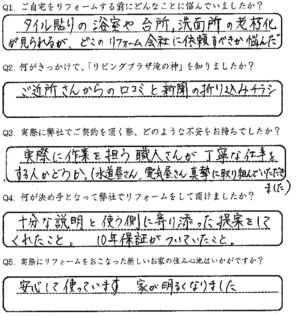 Q1. ご自宅をリフォームする前にどんなことに悩んでいましたか?
タイル貼りの浴室や台所,洗面所の老朽化
が見られるが、どこのリフォーム会社に依頼すべきか悩んだ
Q2. 何がきっかけで、「リビングプラザ滝の神」を知りましたか?
ご近所さんからの口コミと新聞の折り込みチラシ
Q3. 実際に弊社でご契約を頂く際、どのような不安をお持ちでしたか?
実際に作業を担う職人さんが丁寧な仕事を
する人かどうか。(水道屋さん,電気屋さん真摯に取り組んでいただき
ました)
Q4. 何が決め手となって弊社でリフォームをして頂けましたか?
十分な説明と使う側に寄り添った提案をして
くれたこと。 10年保証がついていたこと。
Q5. 実際にリフォームをおこなった新しいお家の住み心地はいかがですか?
安心して使っています 家が明るくなりました